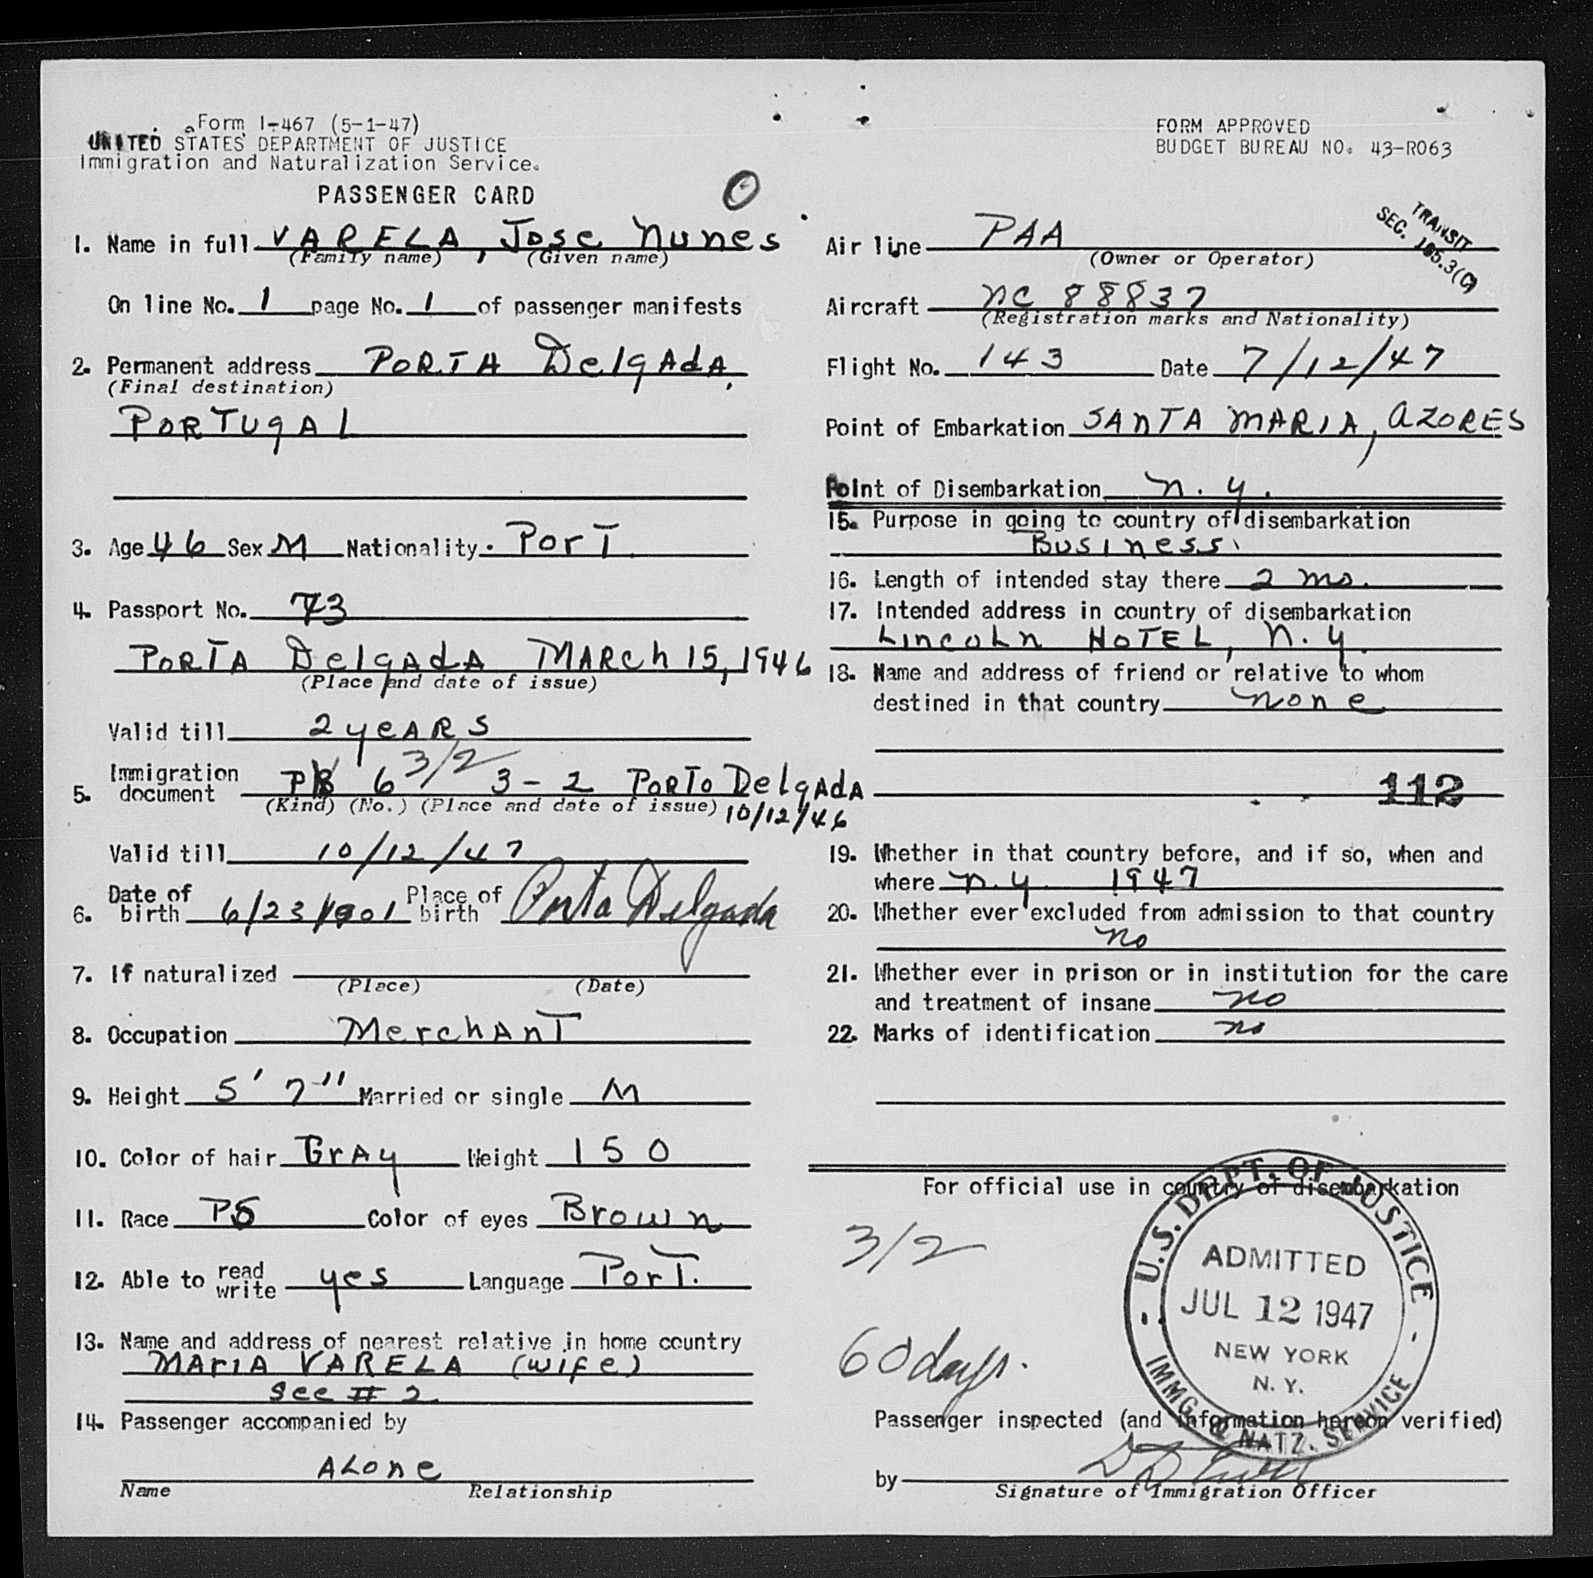 Form I-467 (5-1-47)
UNITED STATES DEPARTMENT OF JUSTICE
Immigration and Naturalization Service.
PASSENGER CARD
1. Name in full VARELA, Jose Nunes
(Family name) (Given name)
On line No. 1 page No. 1 of passenger manifests
2. Permanent address PORTA DelgAdA,
(Final destination)
PORTUgAl
3. Age 46 Sex M Nationality. PorT
4. Passport No. 73
PORTA DelgAdA MARch 15, 1946
(Place and date of issue)
Valid till 2 yeARS
3/2
5. Immigration document 6 3-2 PORTO DelgAdA
(Kind) (No.) (Place and date of issue) 10/12/46
Valid till 10/12/47
6. Date of birth 6/23/1901 Place of birth Porta Delgada
7. If naturalized
(Place) (Date)
8. Occupation MerchAnT
9. Height 5' 7" Married or single M
10. Color of hair GrAy Weight 150
11. Race Color of eyes Brown
12. Able to read write yes Language PorT.
13. Name and address of nearest relative in home country
MArIA VARELA (wife)
See # 2
14. Passenger accompanied by
ALone
Name Relationship
FORM APPROVED
BUDGET BUREAU NO. 43-R063
TRANSIT
SEC. 165.3(C)
Air line PAA
(Owner or Operator)
Aircraft NC 88837
(Registration marks and Nationality)
Flight No. 143 Date 7/12/47
Point of Embarkation SANTA MARIA, AZORES
Point of Disembarkation N.Y.
15. Purpose in going to country of disembarkation
Business
16. Length of intended stay there 2 mo.
17. Intended address in country of disembarkation
Lincoln HOTEL, N.Y.
18. Name and address of friend or relative to whom
destined in that country none
112
19. Whether in that country before, and if so, when and
where N.Y. 1947
20. Whether ever excluded from admission to that country
no
21. Whether ever in prison or in institution for the care
and treatment of insane no
22. Marks of identification no
For official use in country of disembarkation
3/2
60 days.
U.S. DEPT. OF JUSTICE
ADMITTED
JUL 12 1947
NEW YORK
N. Y.
IMMG. & NATZ. SERVICE
Passenger inspected (and information hereon verified)
by
Signature of Immigration Officer